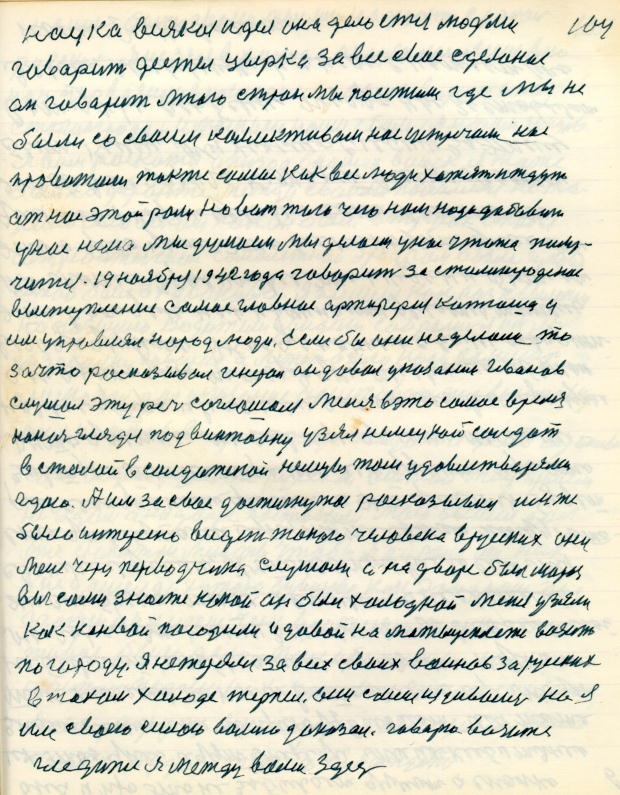 наука всякои идел она дело стел модели 104
говарит детел цырка за все свое сделоное
он говарит много стран мы посетили где мы не
были со своим коллективам нас встречали нас
провожали також самое как все люди хотят и ждут
от нас этой роли но вот того чего нам надо добавит
у нас нема мы думаем мы делаем у нас что то полу-
чится. 19 ноября 1942 года говарит за сталинградское
выступление самое главное артирерия каттюша и
им управлял народ люди. Если бы они не делали то
за что росказывал генерал он довал указания Иванов
слушал эту реч соглошался меня в это самое время
под винтовку узял немецкой солдат
в столой в солдатской немцы там удовлетваряли
А им за свое достигнутое росказывал им же
было интересно видет такого человека в руских они
меня через переводчика слушали а на дворе был мороз
вы сами знаете какой он был холодной меня узяли
как погорили и довой на мотоцыклете возит
по городу. Я не терялся за всех своих воинов за руских
в таком холоде терпел. они сами на я
им своею силою волию доказал. говарю вы же
гледите я между вами здес